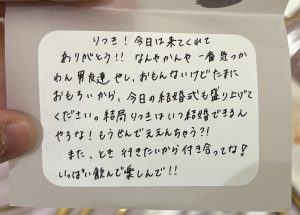 りつき！今日は来てくれて
ありがとう!! なんやかんや一番気つか
わん男友達やし、おもんないけどたまに
おもろいから、今日の結婚式も盛り上げて
ください。結局りつきはいつ結婚できるん
やろな！もうせんでええんちゃう?!
また、とき行きたいから付き合ってな！
いっぱい飲んで楽しんで!!